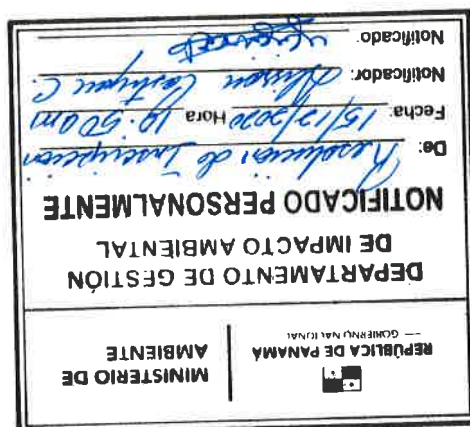 REPÚBLICA DE PANAMÁ
— GOBIERNO NACIONAL —
MINISTERIO DE
AMBIENTE
DEPARTAMENTO DE GESTIÓN
DE IMPACTO AMBIENTAL
NOTIFICADO PERSONALMENTE
De: Resolución de Inscripción
Fecha: 15/12/2020 Hora 10:50am
Notificador: C.
Notificado: